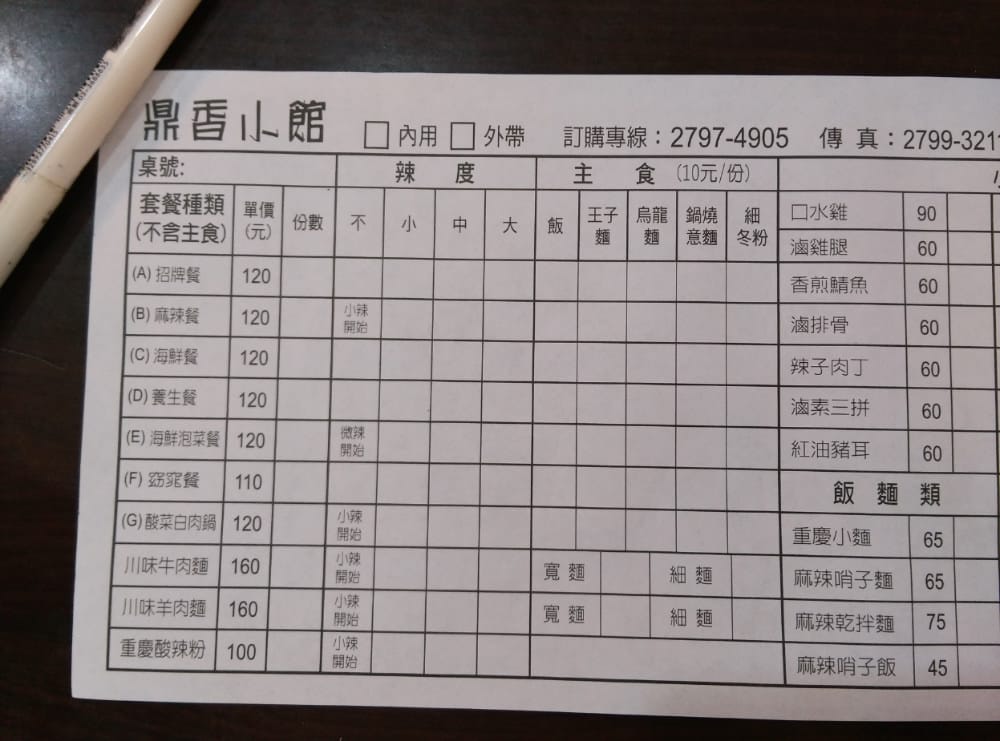 鼎香小館 □ 內用 □ 外帶 訂購專線：2797-4905 傳 真：2799-321
桌號: 辣 度 主 食 (10元/份)
套餐種類 (不含主食) 單價 (元) 份數 不 小 中 大 飯 王子麵 烏龍麵 鍋燒意麵 細冬粉
(A) 招牌餐 120
(B) 麻辣餐 120 小辣開始
(C) 海鮮餐 120
(D) 養生餐 120
(E) 海鮮泡菜餐 120 微辣開始
(F) 窈窕餐 110
(G) 酸菜白肉鍋 120 小辣開始
川味牛肉麵 160 小辣開始 寬 麵 細 麵
川味羊肉麵 160 小辣開始 寬 麵 細 麵
重慶酸辣粉 100 小辣開始
口水雞 90
滷雞腿 60
香煎鯖魚 60
滷排骨 60
辣子肉丁 60
滷素三拼 60
紅油豬耳 60
飯 麵 類
重慶小麵 65
麻辣哨子麵 65
麻辣乾拌麵 75
麻辣哨子飯 45